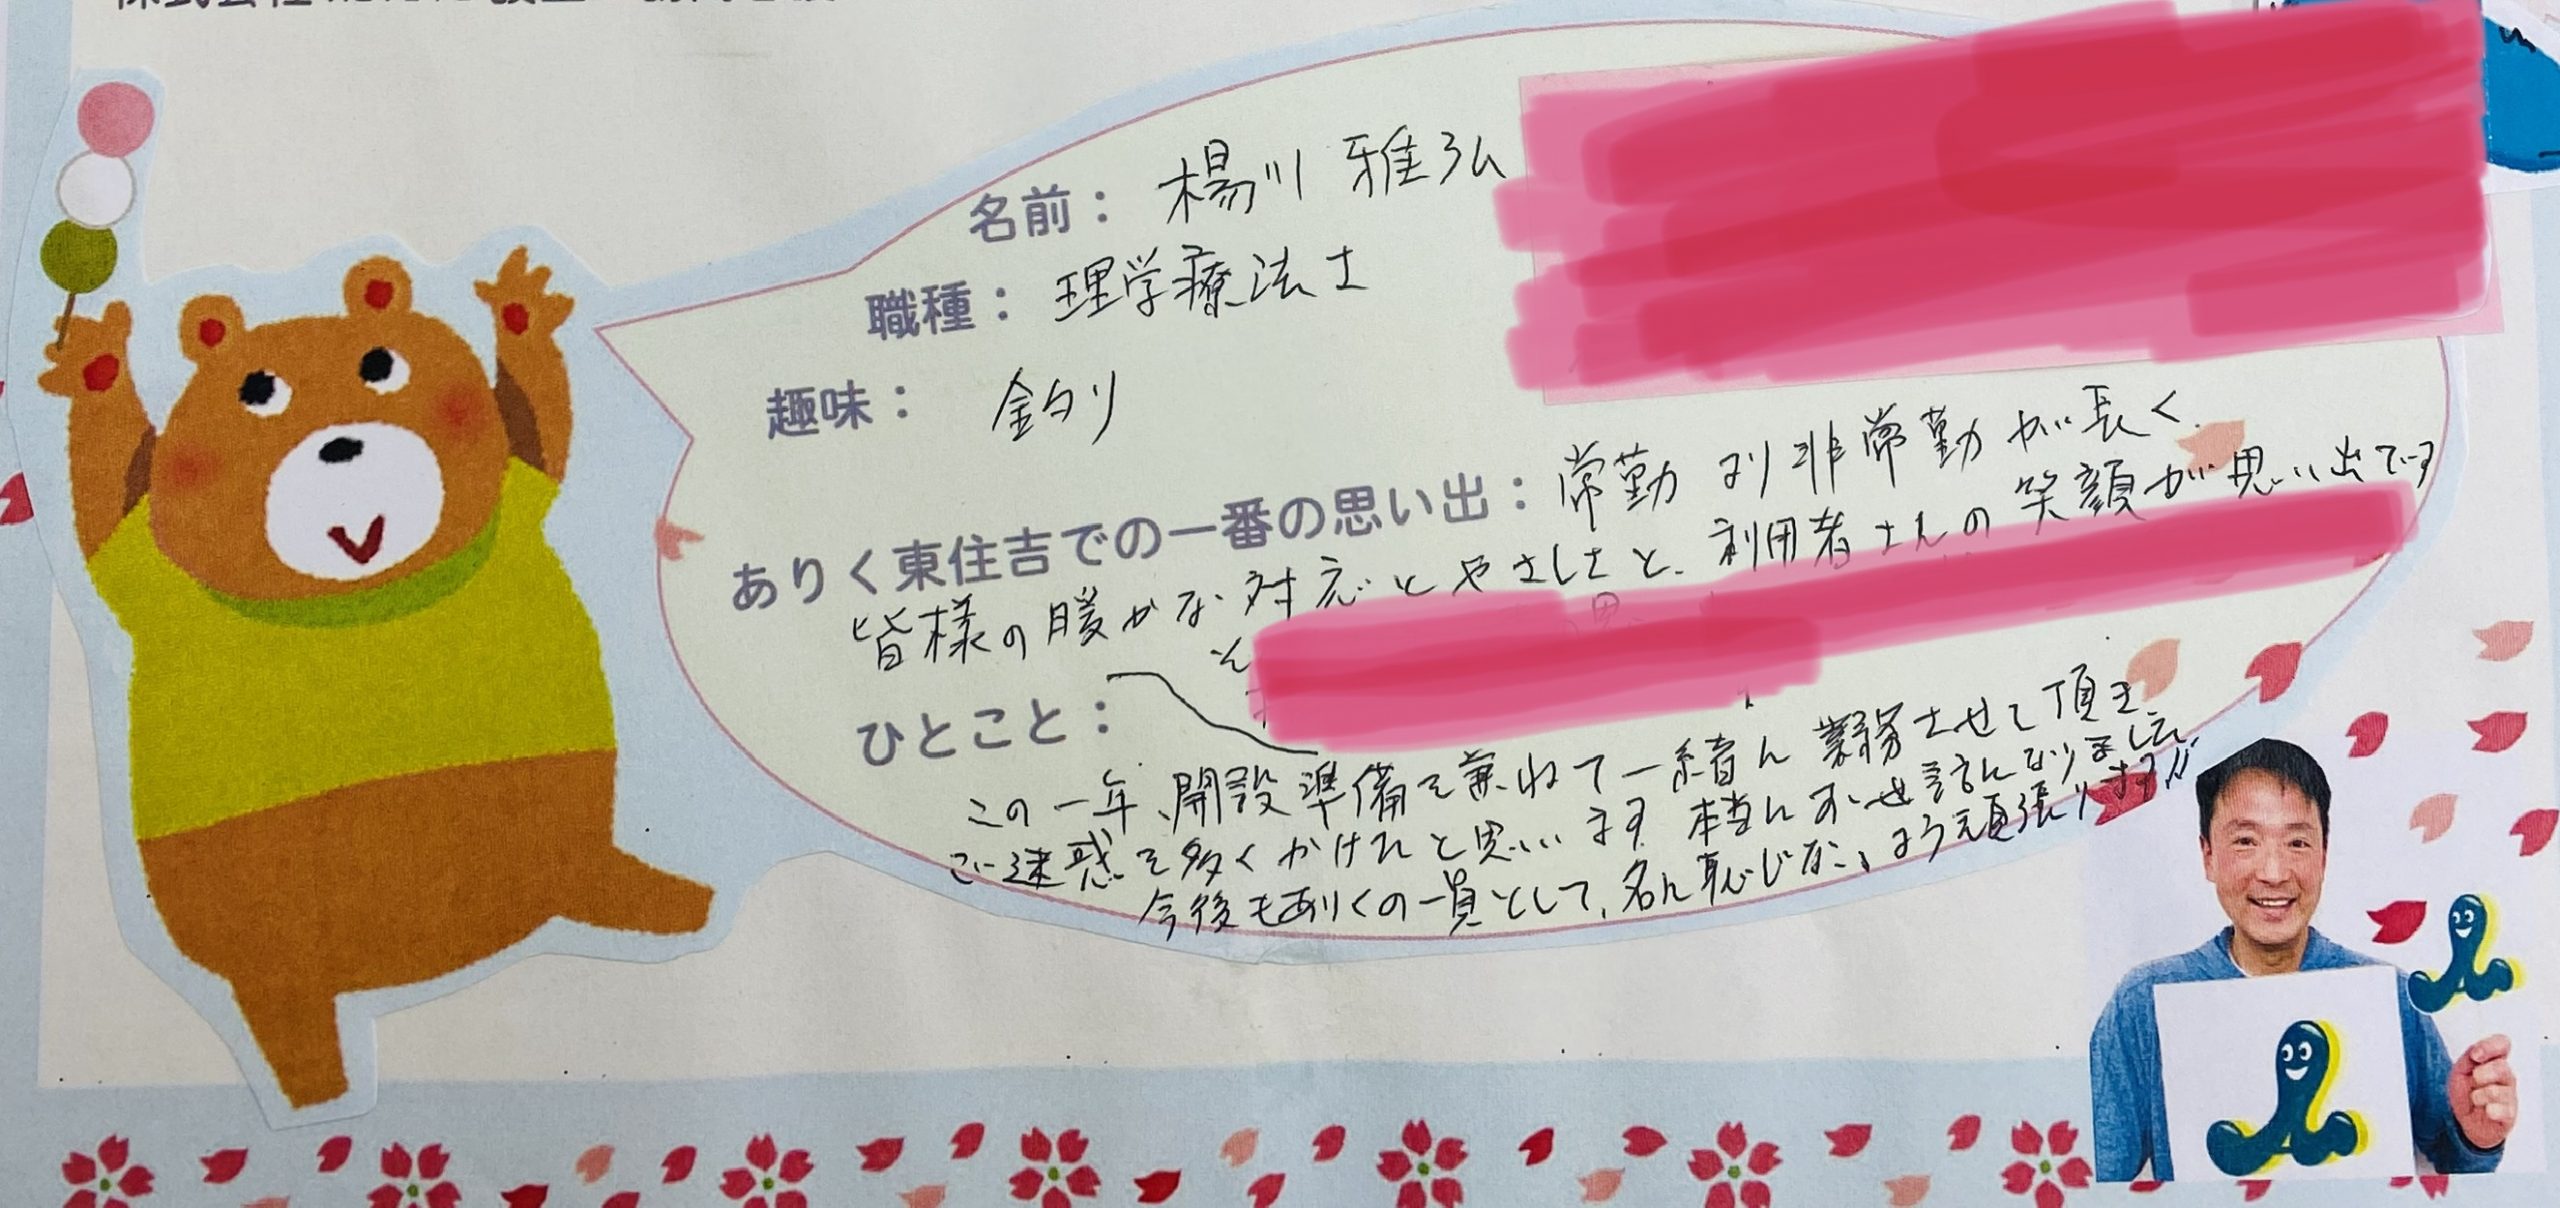 名前： 楊川 雅弘
職種： 理学療法士
趣味： 釣り
ありく東住吉での一番の思い出： 常勤より非常勤が長く、
皆様の暖かな対応とやさしさと、利用者さんの笑顔が思い出です
ひとこと：
この一年、開設準備を兼ねて一緒に業務させて頂き
ご迷惑を多くかけたと思います 本当にお世話になりました
今後もありくの一員として、名に恥じないよう頑張ります!!